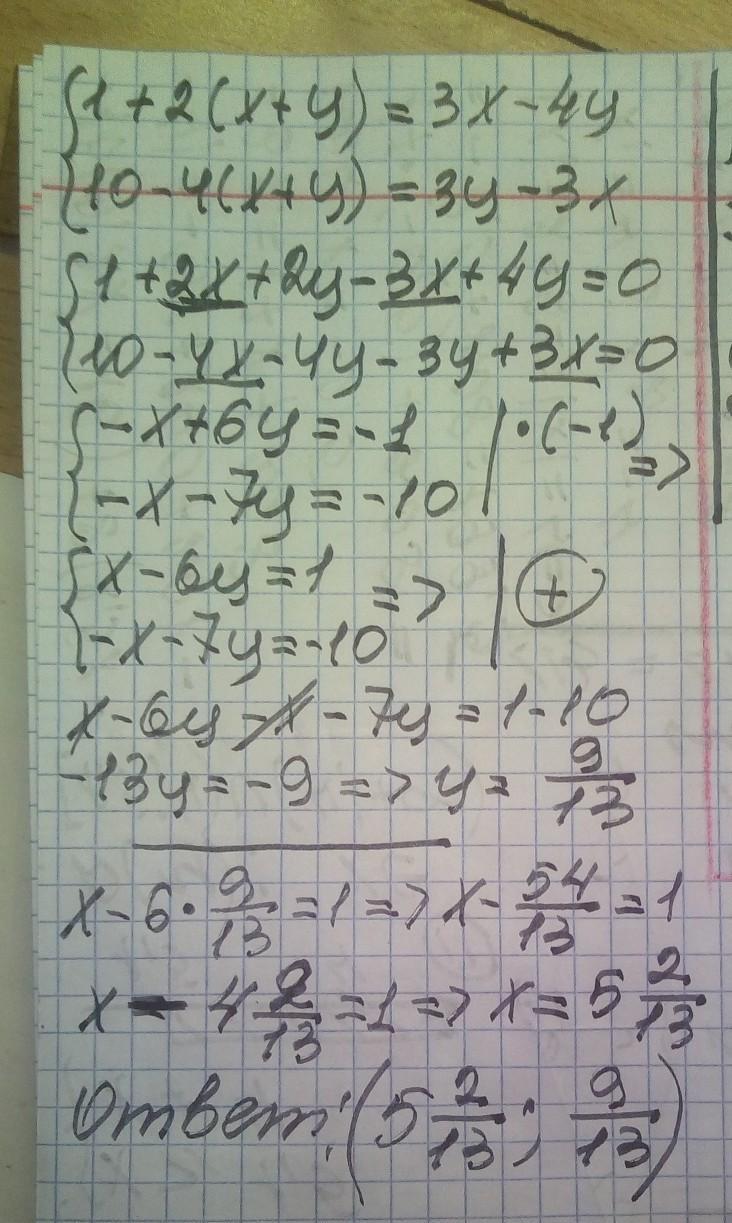 {1 + 2(x+y) = 3x - 4y
{10 - 4(x+y) = 3y - 3x
{1 + 2x + 2y - 3x + 4y = 0
{10 - 4x - 4y - 3y + 3x = 0
{-x + 6y = -1 | · (-1)
{-x - 7y = -10 | =>
{x - 6y = 1 => | (+)
{-x - 7y = -10
x - 6y - x - 7y = 1 - 10
-13y = -9 => y = 9/13
x - 6 · 9/13 = 1 => x - 54/13 = 1
x - 4 2/13 = 1 => x = 5 2/13
Ответ: (5 2/13 ; 9/13)